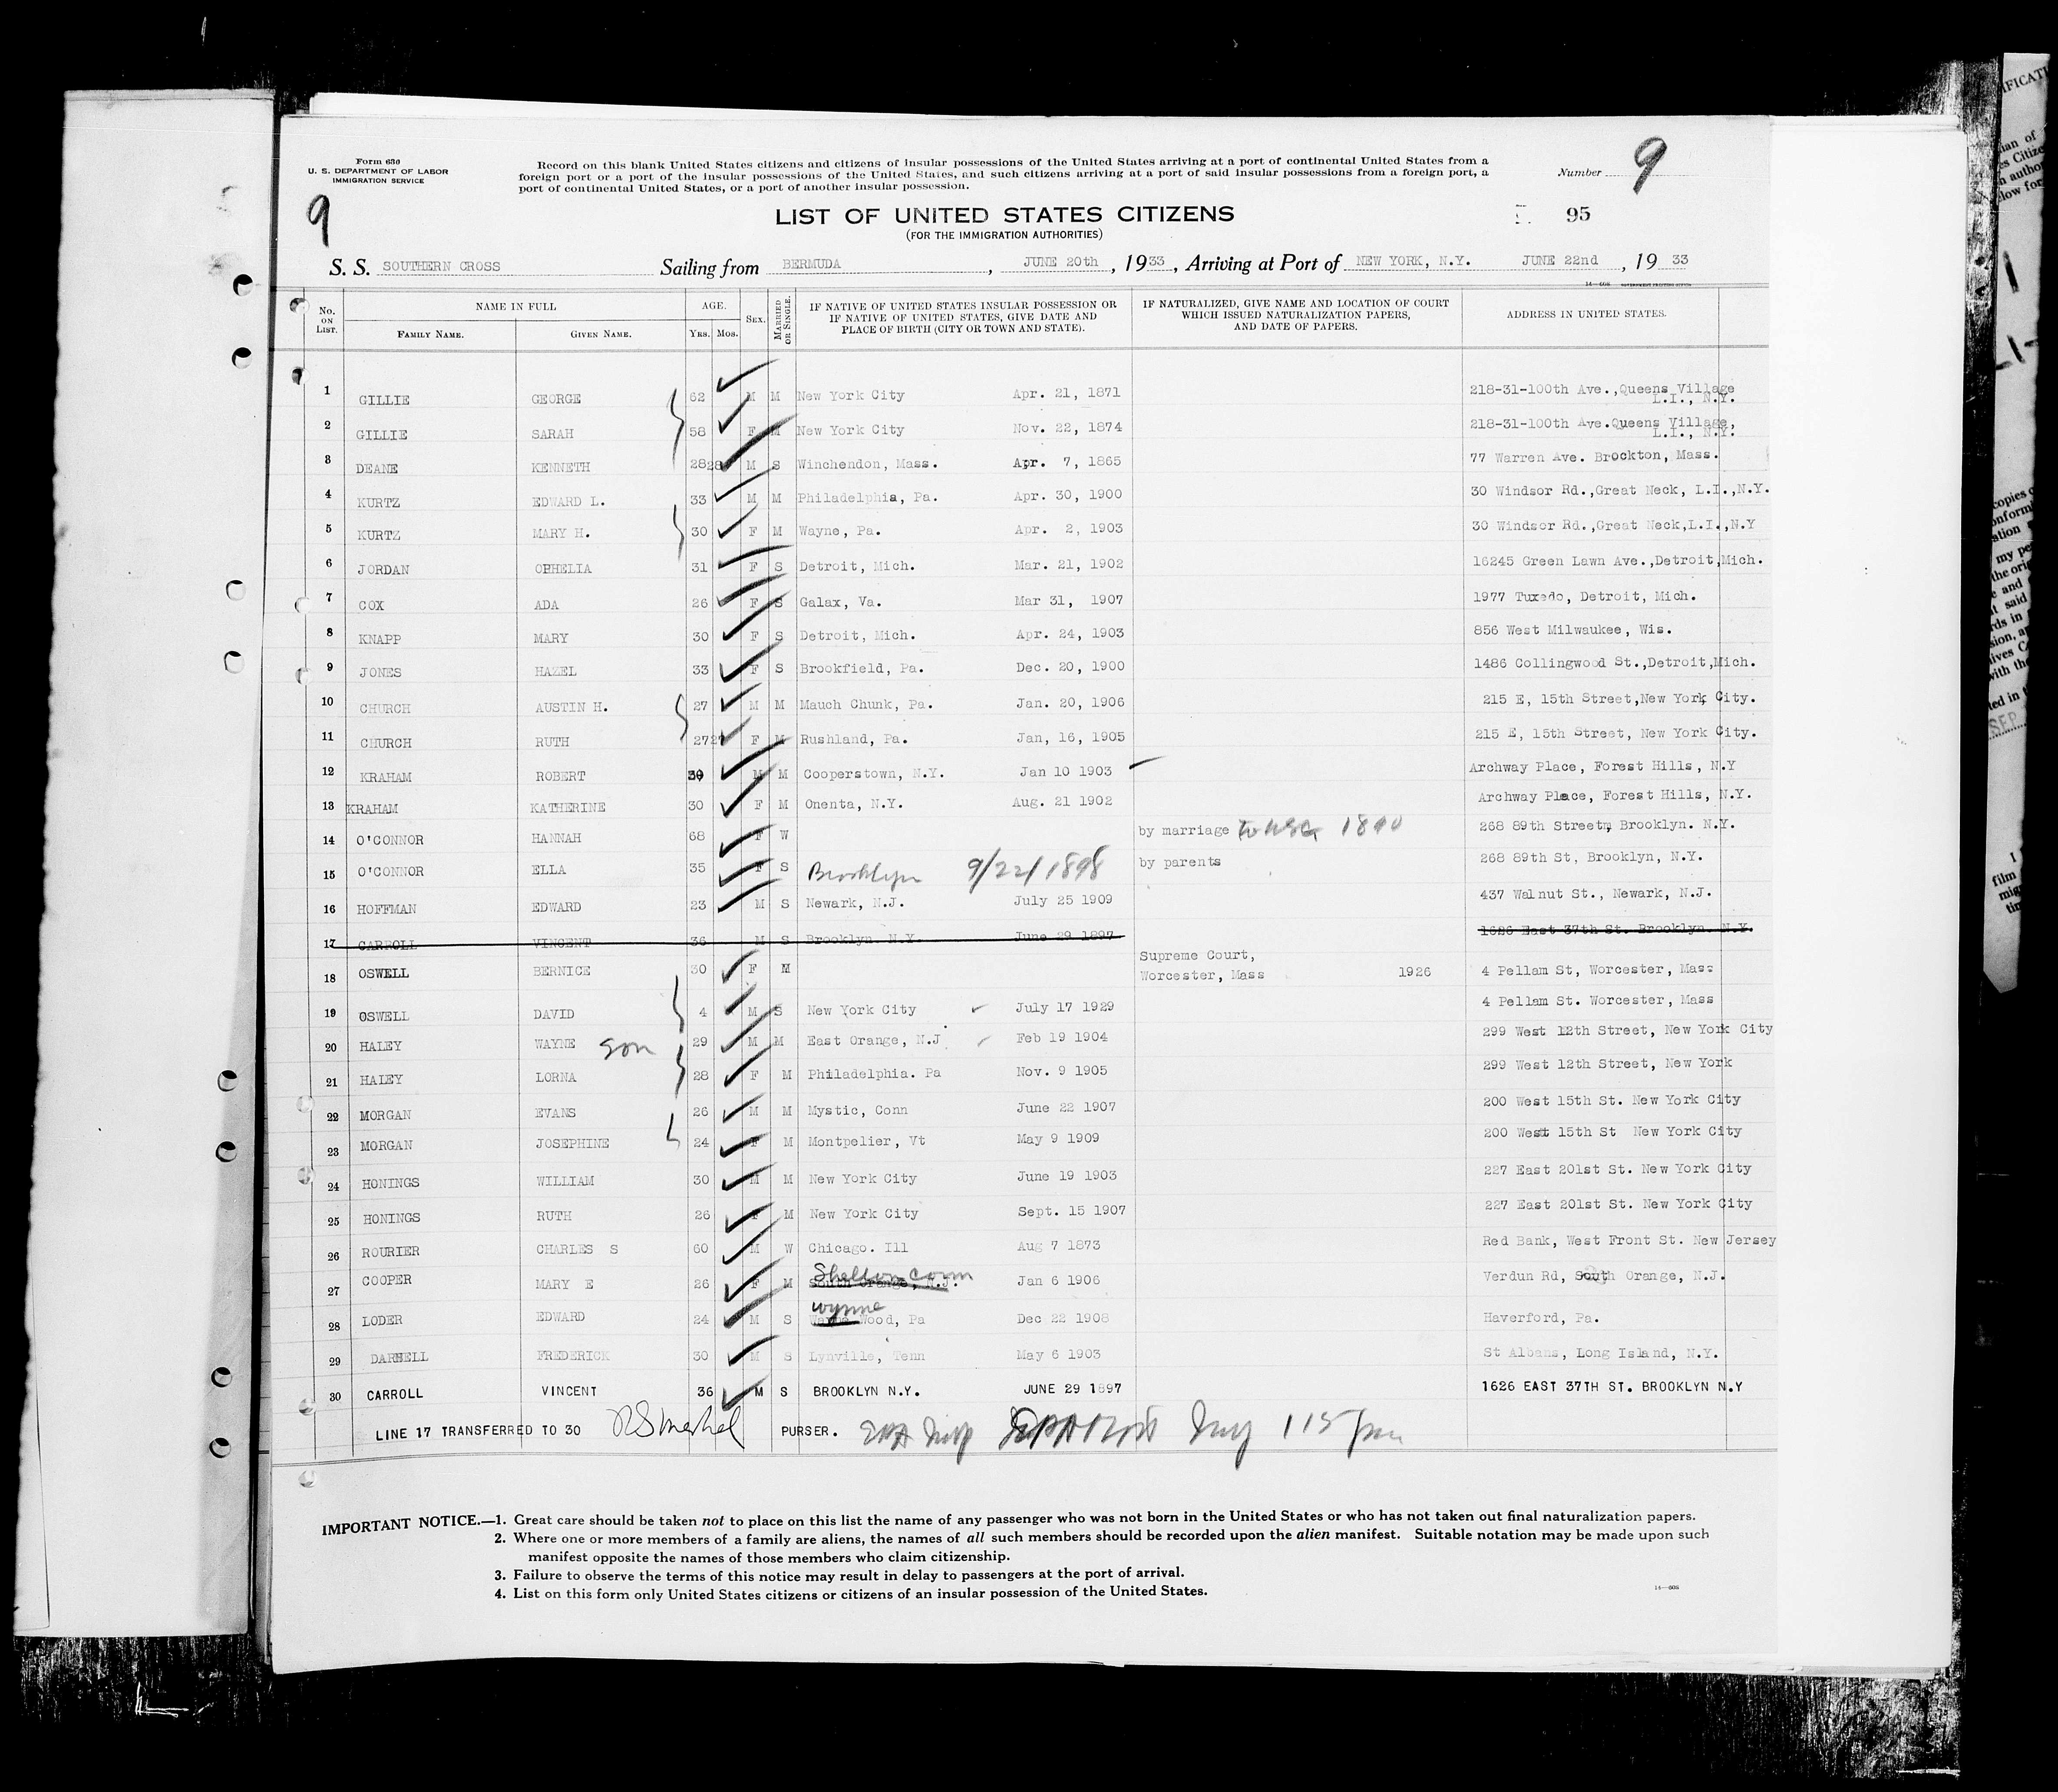 Form 630
U. S. DEPARTMENT OF LABOR
IMMIGRATION SERVICE
Record on this blank United States citizens and citizens of insular possessions of the United States arriving at a port of continental United States from a
foreign port or a port of the insular possessions of the United States, and such citizens arriving at a port of said insular possessions from a foreign port, a
port of continental United States, or a port of another insular possession.
Number 9
9
LIST OF UNITED STATES CITIZENS
95
(FOR THE IMMIGRATION AUTHORITIES)
S. S. SOUTHERN CROSS Sailing from BERMUDA, JUNE 20th, 1933, Arriving at Port of NEW YORK, N.Y. JUNE 22nd, 1933
No. ON LIST. NAME IN FULL AGE. SEX. MARRIED OR SINGLE. IF NATIVE OF UNITED STATES INSULAR POSSESSION OR IF NATIVE OF UNITED STATES, GIVE DATE AND PLACE OF BIRTH (CITY OR TOWN AND STATE). IF NATURALIZED, GIVE NAME AND LOCATION OF COURT WHICH ISSUED NATURALIZATION PAPERS, AND DATE OF PAPERS. ADDRESS IN UNITED STATES.
FAMILY NAME. GIVEN NAME. YRS. MOS.
1 GILLIE GEORGE 62 M M New York City Apr. 21, 1871 218-31-100th Ave.,Queens Village L.I., N.Y.
2 GILLIE SARAH 58 F M New York City Nov. 22, 1874 218-31-100th Ave.Queens Village, L.I., N.Y.
3 DEANE KENNETH 28 28 M S Winchendon, Mass. Apr. 7, 1865 77 Warren Ave. Brockton, Mass.
4 KURTZ EDWARD L. 33 M M Philadelphia, Pa. Apr. 30, 1900 30 Windsor Rd.,Great Neck, L.I.,N.Y.
5 KURTZ MARY H. 30 F M Wayne, Pa. Apr. 2, 1903 30 Windsor Rd.,Great Neck,L.I.,N.Y
6 JORDAN OPHELIA 31 F S Detroit, Mich. Mar. 21, 1902 16245 Green Lawn Ave.,Detroit,Mich.
7 COX ADA 26 F S Galax, Va. Mar 31, 1907 1977 Tuxedo, Detroit, Mich.
8 KNAPP MARY 30 F S Detroit, Mich. Apr. 24, 1903 856 West Milwaukee, Wis.
9 JONES HAZEL 33 F S Brookfield, Pa. Dec. 20, 1900 1486 Collingwood St.,Detroit,Mich.
10 CHURCH AUSTIN H. 27 M M Mauch Chunk, Pa. Jan. 20, 1906 215 E, 15th Street,New York City.
11 CHURCH RUTH 27 27 F M Rushland, Pa. Jan, 16, 1905 215 E, 15th Street, New York City.
12 KRAHAM ROBERT 30 M M Cooperstown, N.Y. Jan 10 1903 Archway Place, Forest Hills, N.Y
13 KRAHAM KATHERINE 30 F M Onenta, N.Y. Aug. 21 1902 Archway Place, Forest Hills, N.Y.
14 O'CONNOR HANNAH 68 F W by marriage 1890 268 89th Street, Brooklyn. N.Y.
15 O'CONNOR ELLA 35 F S Brooklyn 9/22/1898 by parents 268 89th St, Brooklyn, N.Y.
16 HOFFMAN EDWARD 23 M S Newark, N.J. July 25 1909 437 Walnut St., Newark, N.J.
17 CARROLL VINCENT 36 M S Brooklyn N.Y. June 29 1897 1626 East 37th St. Brooklyn. N.Y.
18 OSWELL BERNICE 30 F M Supreme Court, Worcester, Mass 1926 4 Pellam St, Worcester, Mass
19 OSWELL DAVID 4 M S New York City July 17 1929 4 Pellam St. Worcester, Mass
20 HALEY WAYNE son 29 M M East Orange, N.J Feb 19 1904 299 West 12th Street, New York City
21 HALEY LORNA 28 F M Philadelphia. Pa Nov. 9 1905 299 West 12th Street, New York
22 MORGAN EVANS 26 M M Mystic, Conn June 22 1907 200 West 15th St. New York City
23 MORGAN JOSEPHINE 24 F M Montpelier, Vt May 9 1909 200 West 15th St New York City
24 HONINGS WILLIAM 30 M M New York City June 19 1903 227 East 201st St. New York City
25 HONINGS RUTH 26 F M New York City Sept. 15 1907 227 East 201st St. New York City
26 ROURIER CHARLES S 60 M W Chicago. Ill Aug 7 1873 Red Bank, West Front St. New Jersey
27 COOPER MARY E 26 F M Shelton Conn South Orange, N.J. Jan 6 1906 Verdun Rd, South Orange, N.J.
28 LODER EDWARD 24 M S wynne Wayne Wood, Pa Dec 22 1908 Haverford, Pa.
29 DARNELL FREDERICK 30 M S Lynville, Tenn May 6 1903 St Albans, Long Island, N.Y.
30 CARROLL VINCENT 36 M S BROOKLYN N.Y. JUNE 29 1897 1626 EAST 37TH ST. BROOKLYN N.Y
LINE 17 TRANSFERRED TO 30 PURSER. 115
IMPORTANT NOTICE.—1. Great care should be taken not to place on this list the name of any passenger who was not born in the United States or who has not taken out final naturalization papers.
2. Where one or more members of a family are aliens, the names of all such members should be recorded upon the alien manifest. Suitable notation may be made upon such
manifest opposite the names of those members who claim citizenship.
3. Failure to observe the terms of this notice may result in delay to passengers at the port of arrival.
4. List on this form only United States citizens or citizens of an insular possession of the United States.